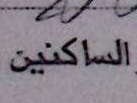 الساكنين